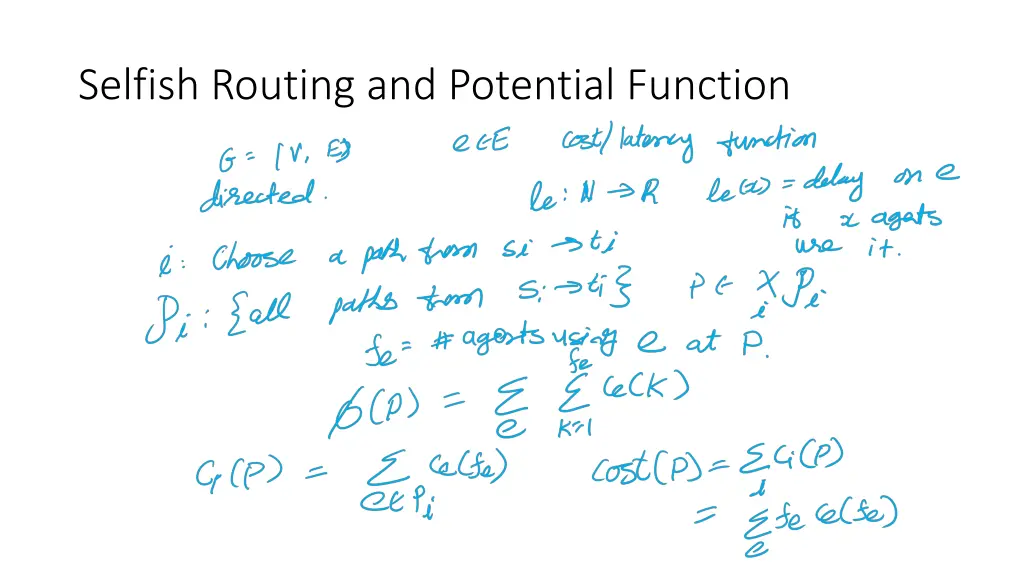 Selfish Routing and Potential Function
G = (V, E) e∈E cost/latency function
directed. le: N → R le(x) = delay on e if x agents use it.
i: Choose a path from si → ti
Pi: {all paths from si → ti} P ∈ X_i Pi
fe = # agents using e at P.
ϕ(P) = ∑_e ∑_{k=1}^{fe} ce(k)
Ci(P) = ∑_{e∈Pi} ce(fe) cost(P) = ∑_i Ci(P)
= ∑_e fe ce(fe)